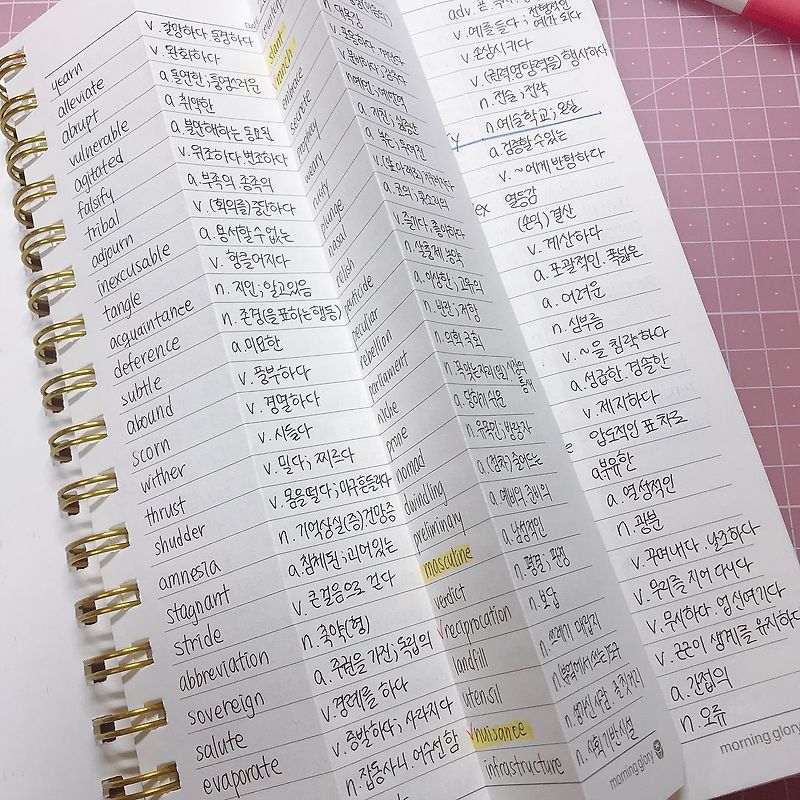 yearn v. 갈망하다 동경하다
alleviate v. 완화하다
abrupt a. 돌연한; 퉁명스러운
vulnerable a. 취약한
agitated a. 불안해하는 동요된
falsify v. 위조하다 변조하다
tribal a. 부족의 종족의
adjourn v. (회의를)중단하다
inexcusable a. 용서할수없는
tangle v. 헝클어지다
acquaintance n. 지인; 알고있음
deference n. 존경(을표하는행동)
subtle a. 미묘한
abound v. 풍부하다
scorn v. 경멸하다
wither v. 시들다
thrust v. 밀다; 찌르다
shudder v. 몸을떨다; 마구흔들리다
amnesia n. 기억상실(증)건망증
stagnant a. 침체된; 괴어있는
stride v. 큰걸음으로 걷다
abbreviation n. 축약(형)
sovereign a. 주권을 가진; 독립의
salute v. 경례를 하다
evaporate v. 증발하다; 사라지다
n. 잡동사니. 어수선함
slant
enrich
embrace
secrete
prophecy n. 예언; 예언력
weary a. 지친; 싫증난
plunge
nasal a. 코의; 콧소리의
relish v. 즐기다, 좋아하다
pesticide n. 살충제 농약
peculiar a. 이상한; 고유의
rebellion n. 반란; 저항
parliament n. 의회 국회
niche n. 꼭맞는자리(일) 시장의 틈새
prone a. 당하기 쉬운
nomad n. 유목민; 방랑자
dwindling a. (점차) 줄어드는
preliminary a. 예비의 준비의
masculine a. 남성적인
verdict n. 평결; 판정
reciprocation n. 보답
landfill n. 쓰레기 매립지
utensil n. (부엌에서 쓰는)도구
nuisance n. 성가신 사람, 골칫거리
infrastructure n. 사회 기반 시설
morning glory
v. 예를 들다; 예가 되다
v. 손상시키다
v. (권력영향력을) 행사하다
n. 전술; 전략
n. 예술학교; 온실
a. 검증할 수 있는
v. ~에게 반항하다
열등감
(손익) 결산
v. 계산하다
a. 포괄적인. 폭넓은
a. 어려운
n. 심부름
v. ~을 침략하다
a. 성급한. 경솔한
v. 제지하다
압도적인 표 차로
a. 부유한
a. 열성적인
n. 광분
v. 꾸며내다. 날조하다
v. 무리를 지어 다니다
v. 무시하다. 업신여기다
v. 근근이 생계를 유지하다
a. 간접의
n. 오류
morning glory